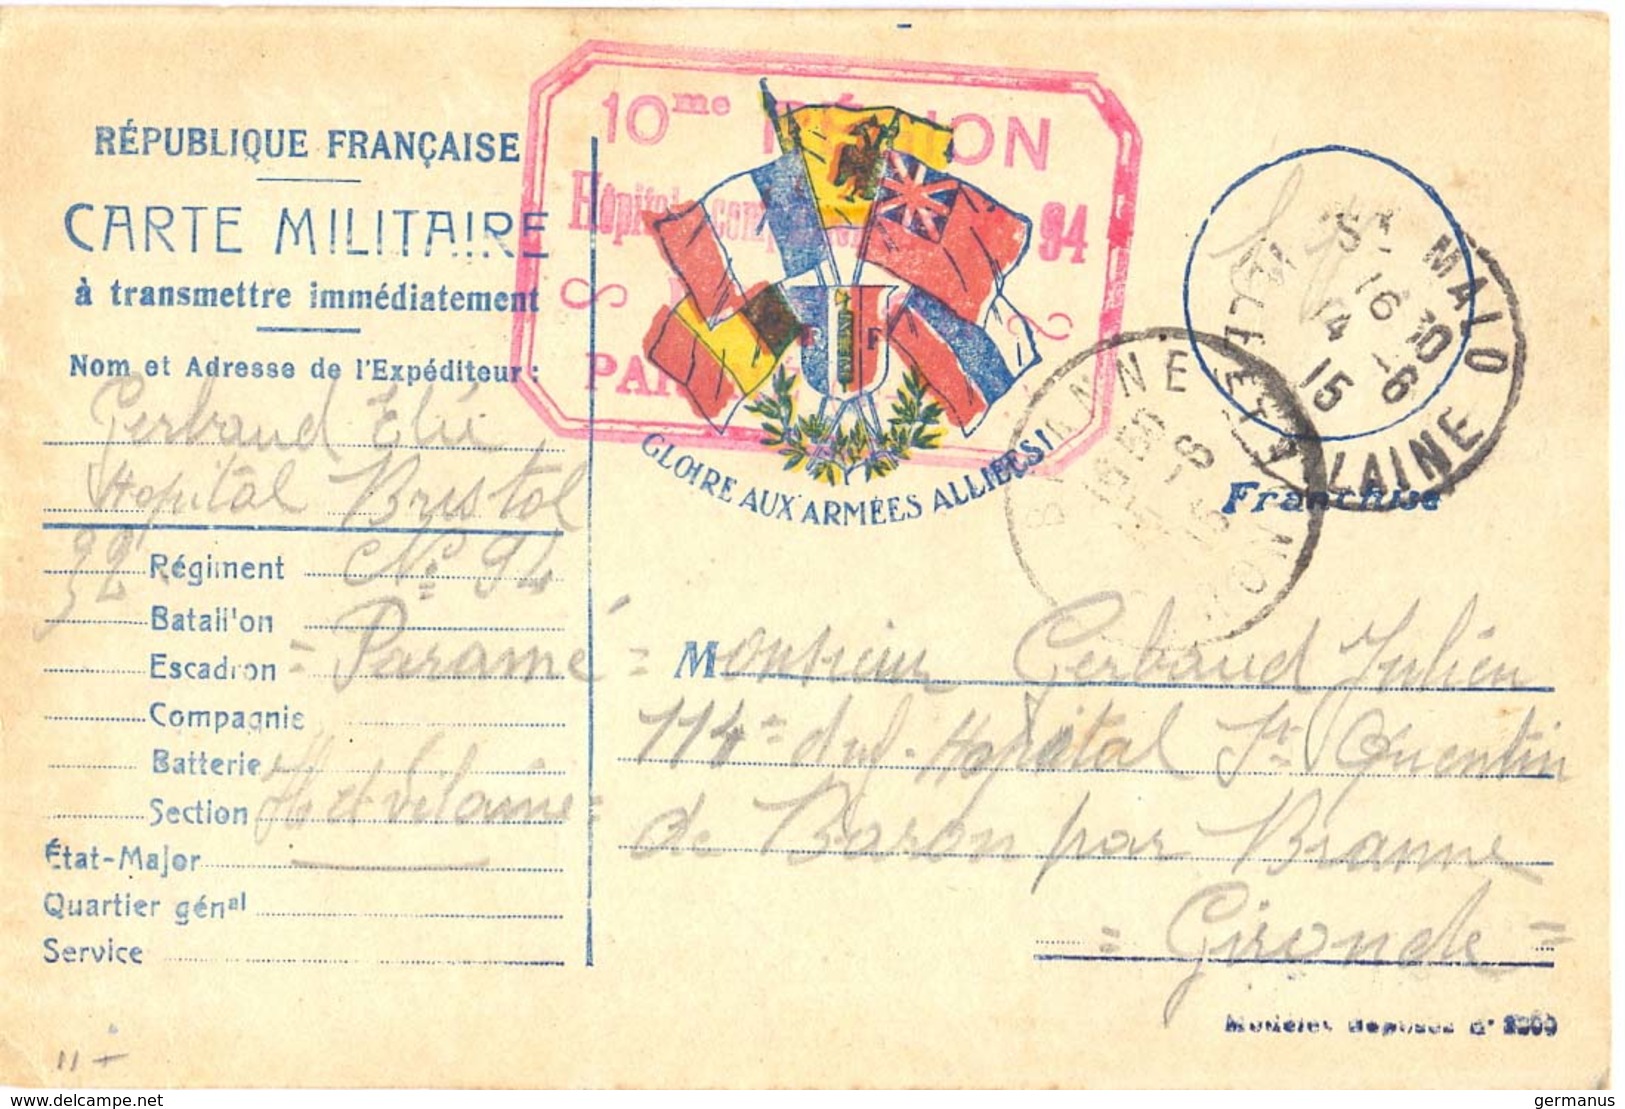 RÉPUBLIQUE FRANÇAISE
CARTE MILITAIRE
à transmettre immédiatement
Nom et Adresse de l'Expéditeur :
Gerbaud Elie
Hopital Bristol
32 Régiment N° 94
Batail'on
Escadron = Paramé =
Compagnie
Batterie
Section Ile et Vilaine =
État-Major
Quartier génal
Service
10me RÉGION
Hôpital 94
PAR
R F
GLOIRE AUX ARMÉES ALLIEES!
ST MALO
ILLE-ET-VILAINE
16 30
14 -6
15
BRANNE
GIRONDE
Franchise
Monsieur Gerbaud Julien
114e Hopital St Quentin
de Baron par Branne
= Gironde =
Modèles déposés
11 -
delcampe.net
germanus